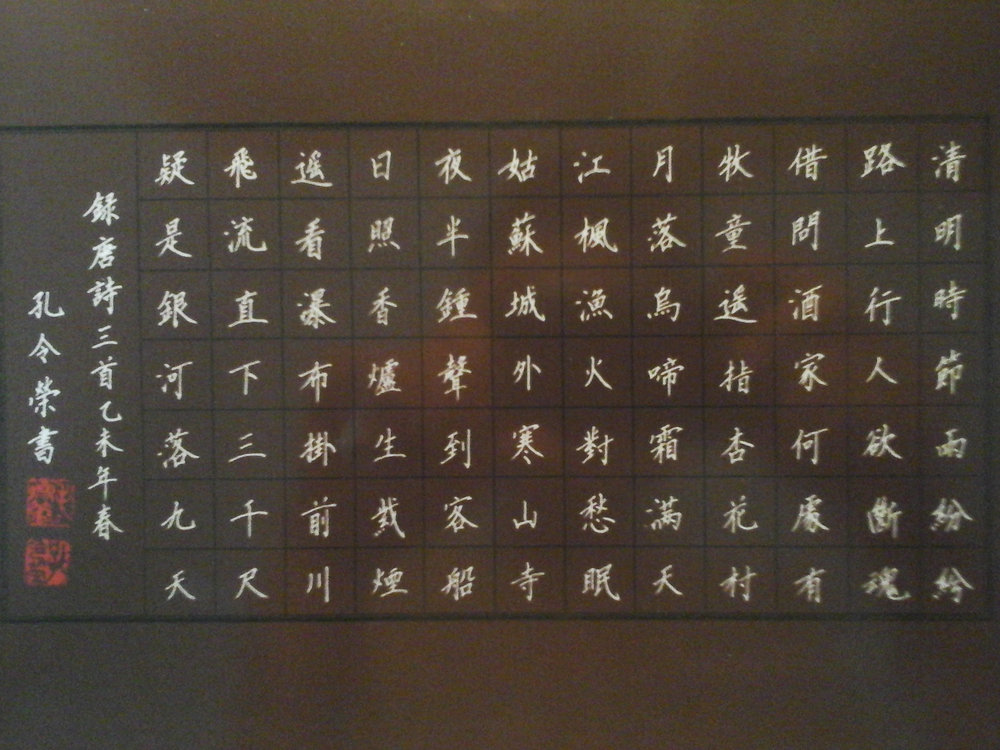 清明時節雨紛紛
路上行人欲斷魂
借問酒家何處有
牧童遥指杏花村
月落烏啼霜滿天
江楓漁火對愁眠
姑蘇城外寒山寺
夜半鍾聲到客船
日照香爐生紫煙
遥看瀑布掛前川
飛流直下三千尺
疑是銀河落九天
録唐詩三首乙未年春
孔令榮書